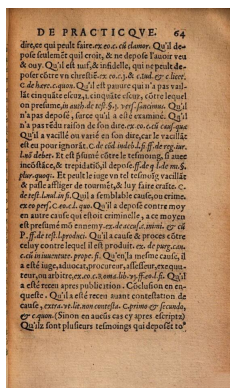 DE PRACTICQVE. 64
dire, ce qui peut faire. ex eo. c. cū clamor. Qu'il de-
pose seulement quil croit, & ne depose l'auoir veu
& ouy. Qu'il est turc, & infidelle, qui ne peut de-
poser cōtre vn chrestiē. ex eo. c. j. & c. sed. & c. licet.
C. de hære. c. quon. Qu'il est pauure qui n'a pas vail-
lāt cinquāte escuz, & cinquāte escuz, cōtre lequel
on presume, in auth. de test. §. j. vers. sancimus. Qu'il
n'a pas deposé, fors ce qu'il a esté examiné. Qu'il
n'a pas rēdu raison de son dire. ex eo. c. cū causam. que
Qu'il a vacillé ou varié en son dire, car le vacillāt
est eu pour ignorāt. C. de eod. in
luē debet. Et est presumé cōtre le tesmoing, si auec
incōstāce, & trepidatiō, il depose. ff. de q. l. de mi. §.
plur. quoq. Et peut le iuge vn tel tesmoīg vacillāt
& pasle affliger de tourmēt, & luy faire craīte. C.
de test. l. nul. in fi. Quil a semblable cause, ou crime.
ex eo. pers. C. eo. c. l. quo. Qu'il a deposé contre moy
en autre cause qui estoit criminelle, a ce moyen
est presumé mō ennemy. ex. de accusa. mini. & cū
P. ff. de test. l. produci. Qu'il a cause & proces cōtre
celuy contre lequel il est produit. ex. de purg. can.
c. cū in iuuentute. prope. fi. Qu'en la mesme cause, il
a esté iuge, aduocat, procureur, assesseur, exequu-
teur, ou arbitre, ex. eo. c. Roma. lib. vj. ff. eo. l. fi. Qu'il
a esté recen apres publication. Cōclusion en en-
queste. Qu'il a esté recen auant contestation de
cause, extra. vt. lit. non contesta. C. primo & secundo,
& c. quon. (Sinon en aucūs cas cy apres escriptz)
Qu'ilz sont plusieurs tesmoings qui deposēt to⁹